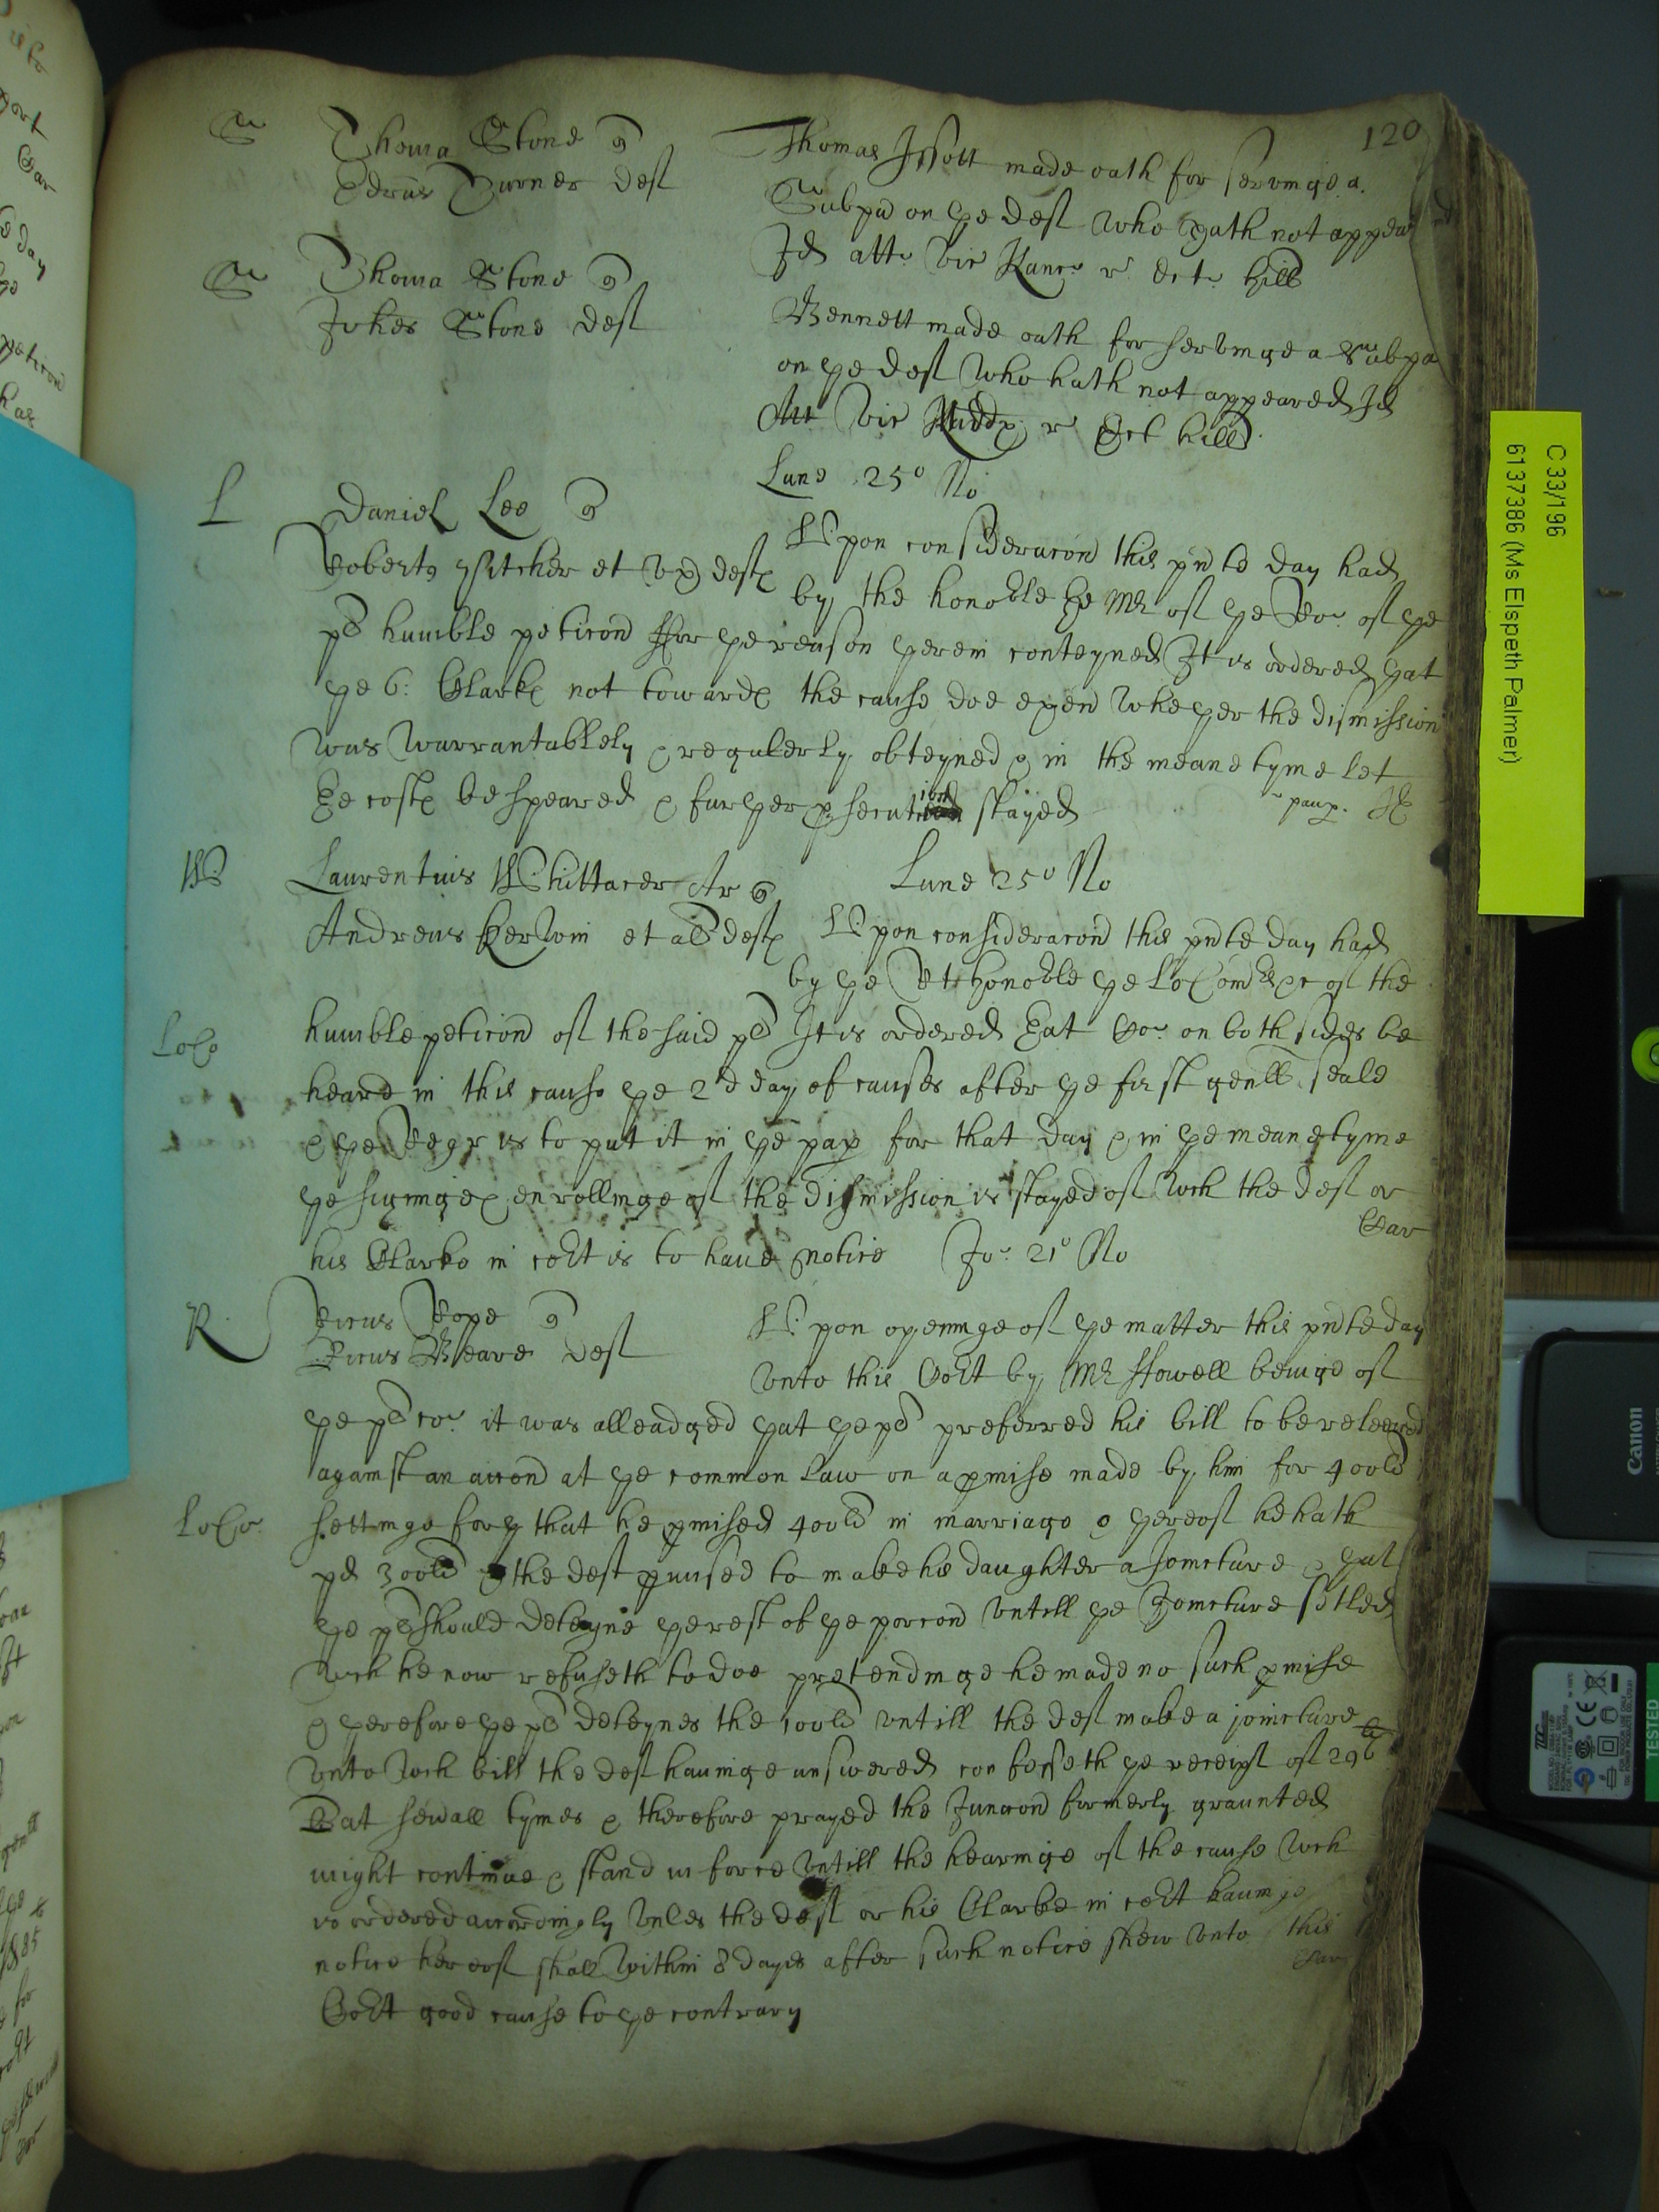 120
S Thoma Stone q
Edrus Turner deft
Thomas Issott made oath for servinge a
Subpa on ye deft who hath not appeared
Id att vic Kanc r Oct hill
S Thoma Stone q
Johes Stone deft
Bennett made oath for servinge a Subpa
on ye deft who hath not appeared Id
Att vic Midd r Oct hill
Lune 25o No
L Daniel Lee q
Robertq et vx deftes
Upon consideracon this pnte day had
by the honoble ye Mr of ye Ro: of ye
pl humble peticon for ye reason yerein conteyned It is ordered yat
ye 6: Clarkes not towardes the cause doe exen wheyer the dismission
was warrantablely & regulerly obteyned & in the meane tyme let
ye costes be speared & furyer psecution stayed
paup.
W Laurentius Whittacer Ar q
Lune 25o No
Andreus Kerwin et al deftes
Upon consideracon this pnte day had
by ye Rt honoble ye Lo Comrs of the
LoCo humble peticon of the said pl It is ordered yat Co: on both sides be
heard in this cause ye 2d day of causes after ye first genll seale
& ye Regr is to put it in ye pap for that day & in ye meane tyme
ye signinge & enrollinge of the dismission is stayed of wch the deft or
Car
his Clarke in cort is to have notice Jo: 21o No
R Ricus Rope q
Ricus Weare deft
Upon openinge of ye matter this pnte day
vnto this Cort by Mr Howell beinge of
ye pl co: it was alleadged yat ye pl preferred his bill to be releeved
against an accon at ye common law on a pmise made by him for 400l
LoCo: settinge forth that he pmised 400l in marriage & yereof he hath
pd 300l & the deft pmised to make his daughter a Joincture & yat
ye pl should deteyne ye rest of ye porcon vntill ye Joincture setled
wch he now refuseth to doe pretendinge he made no such pmise
& yerefore ye pl deteynes the 100l vntill the deft make a joincture
vnto wch bill the deft hauinge answered confesseth ye receipt of 296l
at seuall tymes & therefore prayed the Iniuncon formerly graunted
might continue & stand in force vntill the hearinge of the cause wch
is ordered accordingly vnles the deft or his Clarke in cort hauinge
notice hereof shall within 8 dayes after such notice shew vnto this
Car
Cort good cause to ye contrary
C 33/196
6137386 (Ms Elspeth Palmer)
Canon
TESTED